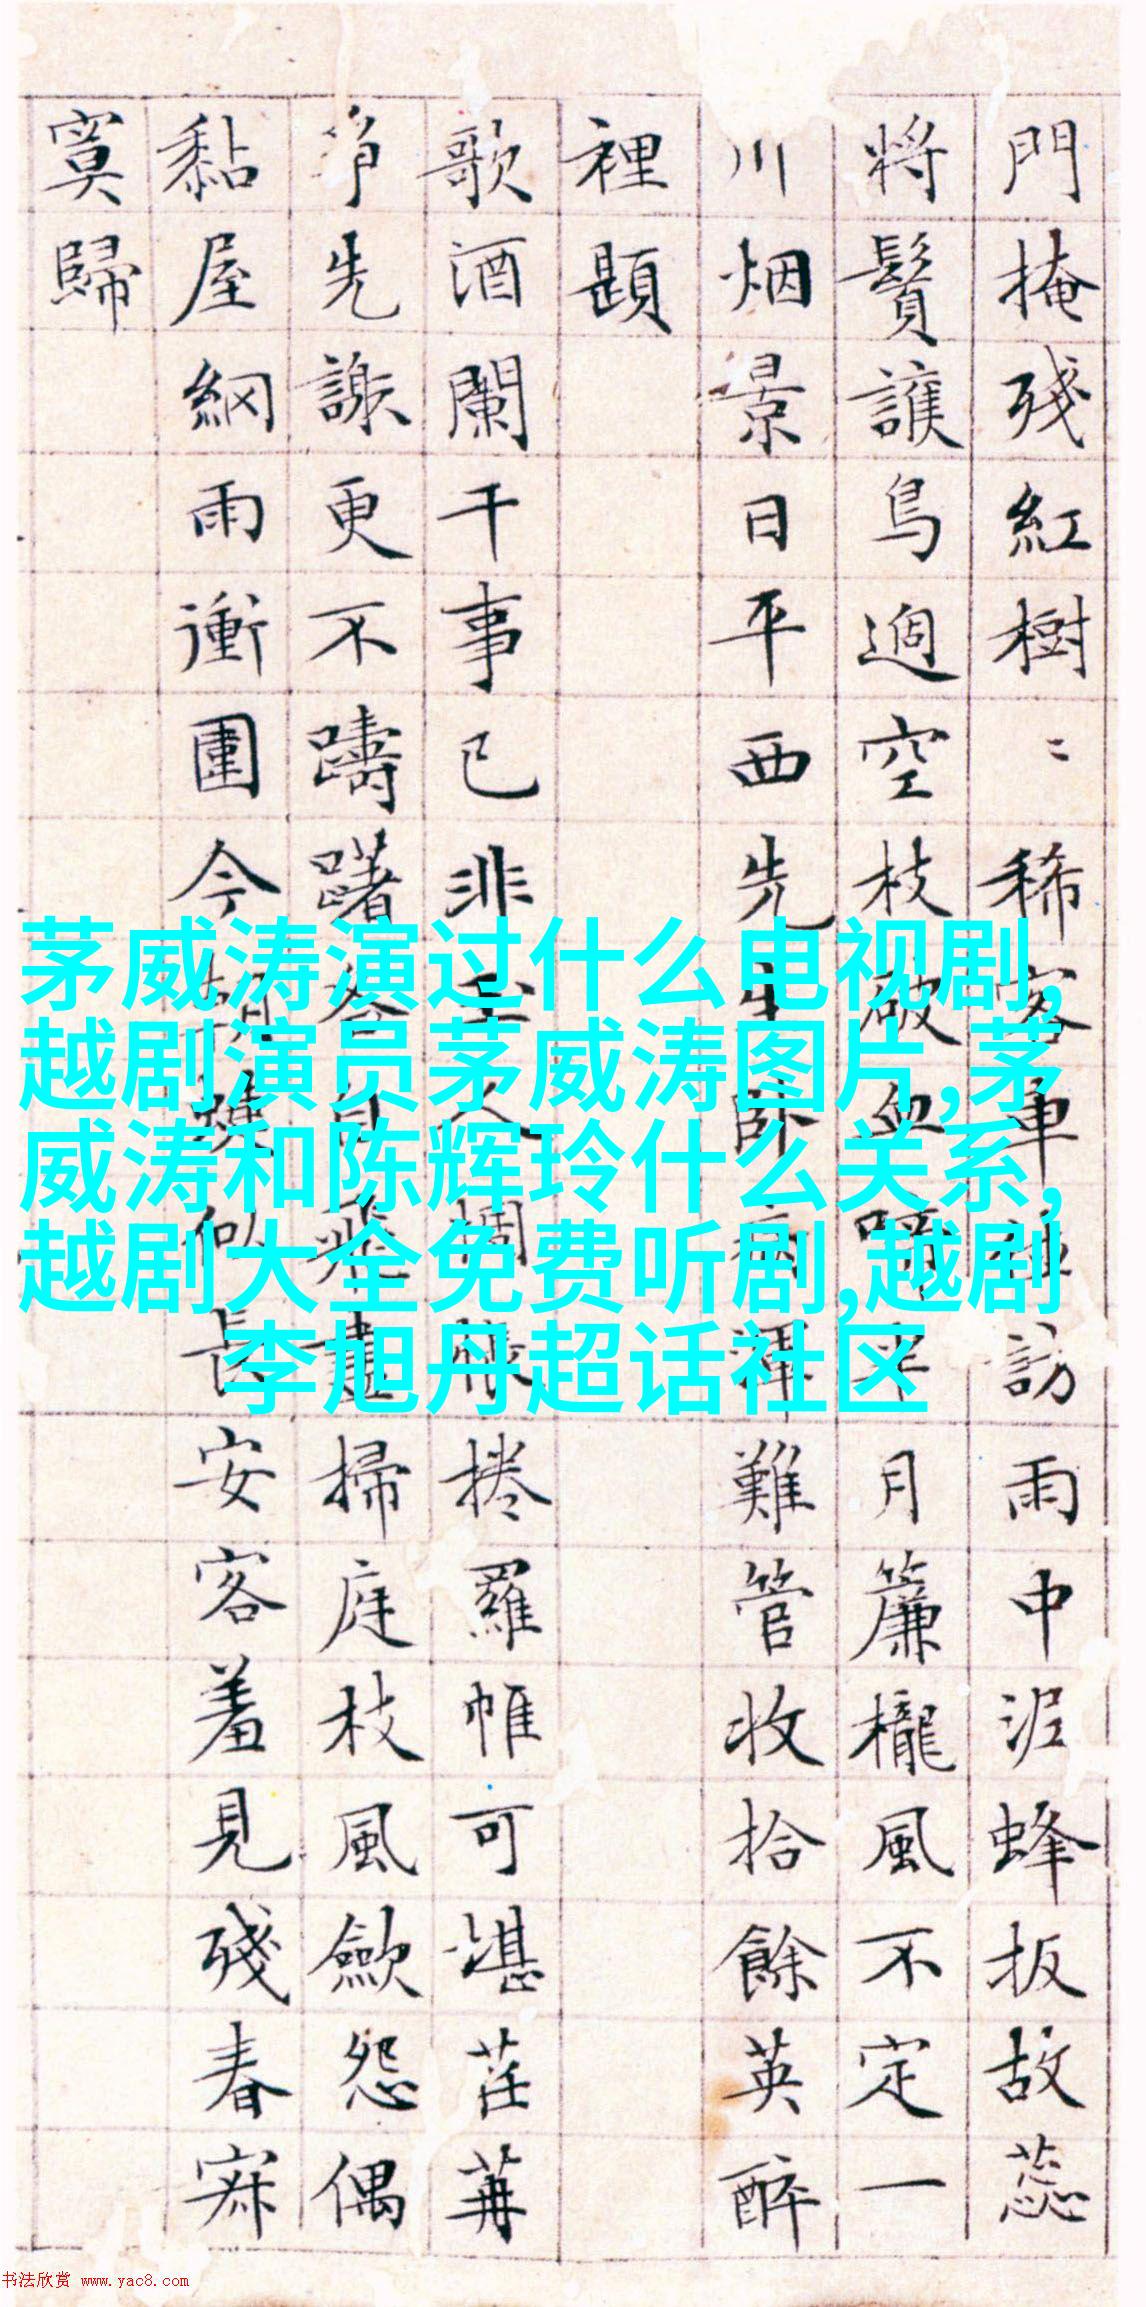 門掩殘紅樹〻稀客車訪雨中泥蜂扳故蕊
將護鳥過空枝破血啼月簾櫳風不定一
川烟景日平西先生臥病渾難管收拾餘英醉
裡題
歌酒闌干事已非主人惆悵捲羅帷可堪荏苒
爭先謝更不躊躇各自飛晝掃庭枝風歛怨偶
黏屋網雨衝圍今朝蝶似長安客羞見殘春寂
寞歸
茅威涛演过什么电视剧,
越剧演员茅威涛图片,茅
威涛和陈辉玲什么关系,
越剧大全免费听剧,越剧
李旭丹超话社区
书法欣赏 www.yac8.com